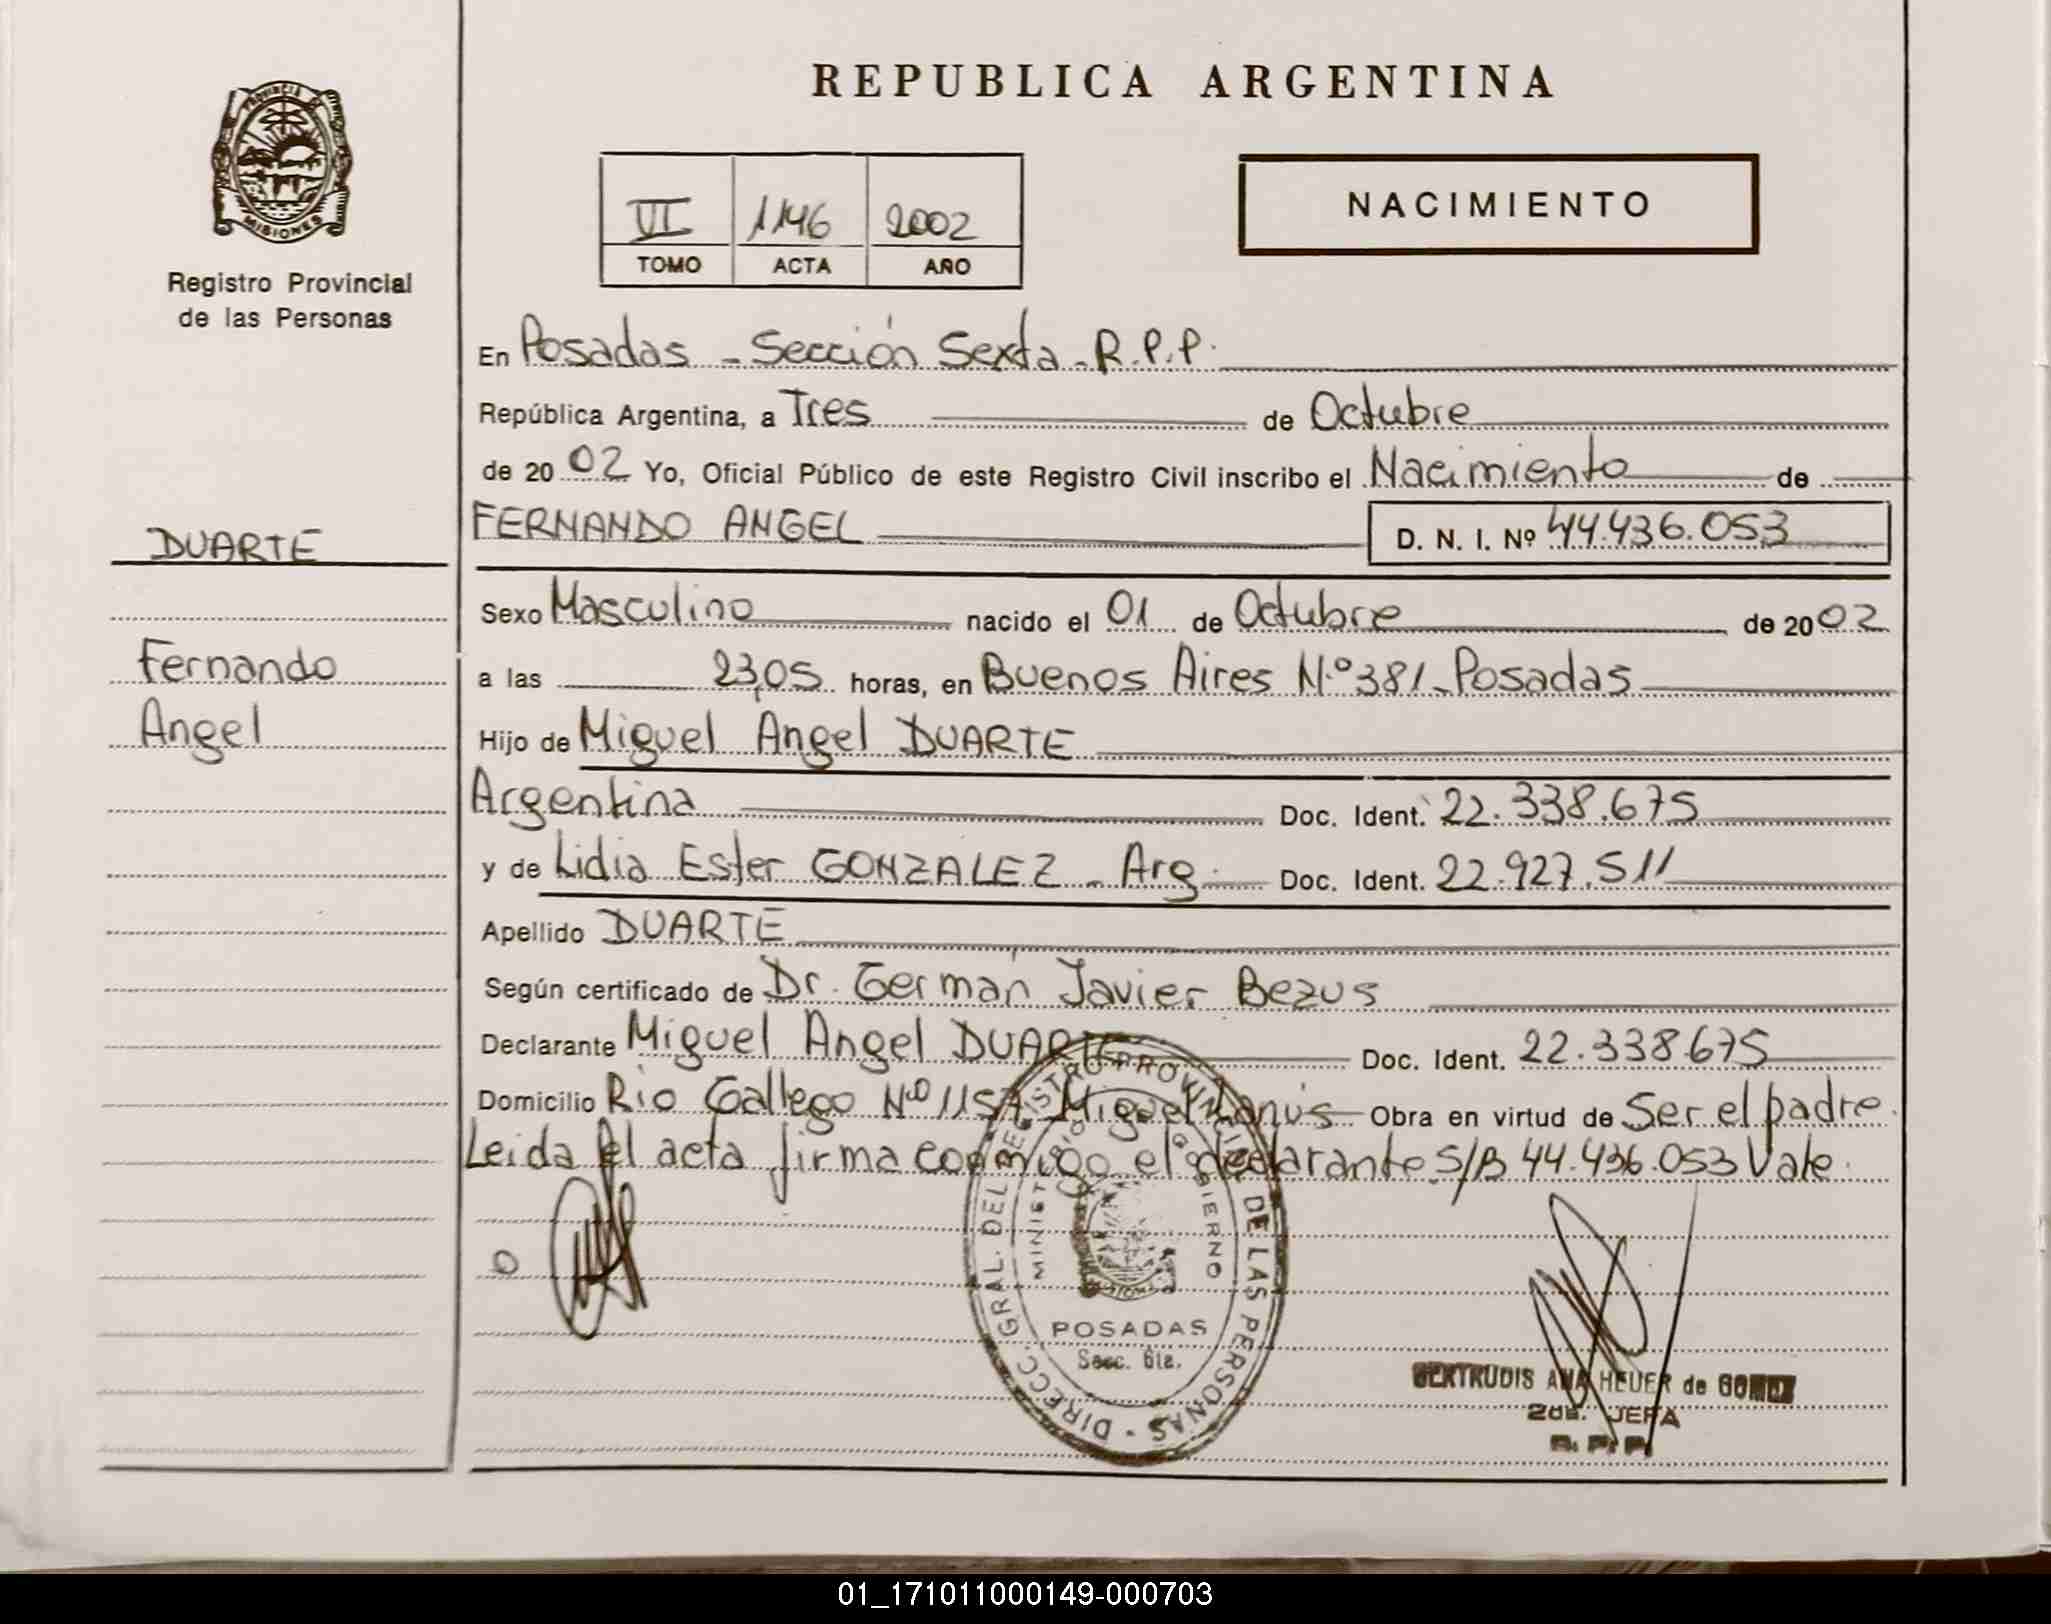 REPUBLICA ARGENTINA
PROVINCIA DE
MISIONES
Registro Provincial
de las Personas
VI 1146 2002
TOMO ACTA AÑO
NACIMIENTO
En Posadas - Sección Sexta - R.P.P.
República Argentina, a Tres de Octubre
de 2002 Yo, Oficial Público de este Registro Civil inscribo el Nacimiento de
DUARTE
FERNANDO ANGEL D. N. I. Nº 44.436.053
Sexo Masculino nacido el 01 de Octubre de 2002
Fernando
a las 23,05 horas, en Buenos Aires N.º 381 - Posadas
Angel
Hijo de Miguel Angel DUARTE
Argentina Doc. Ident. 22.338.675
y de Lidia Ester GONZALEZ - Arg. Doc. Ident. 22.927.511
Apellido DUARTE
Según certificado de Dr. Germán Javier Bezus
Declarante Miguel Angel DUARTE Doc. Ident. 22.338.675
Domicilio Rio Gallego Nº Miguel Lanús Obra en virtud de Ser el padre.
Leida el acta firma conmigo el declarante S/B 44.436.053 Vale.
DIRECC. GRAL. DEL REGISTRO PROVINCIAL DE LAS PERSONAS
MINISTERIO GOBIERNO
POSADAS
Secc. 6ta.
GERTRUDIS ANA HEUER de GOMEZ
2da. JEFA
R. P. P.
01_171011000149-000703